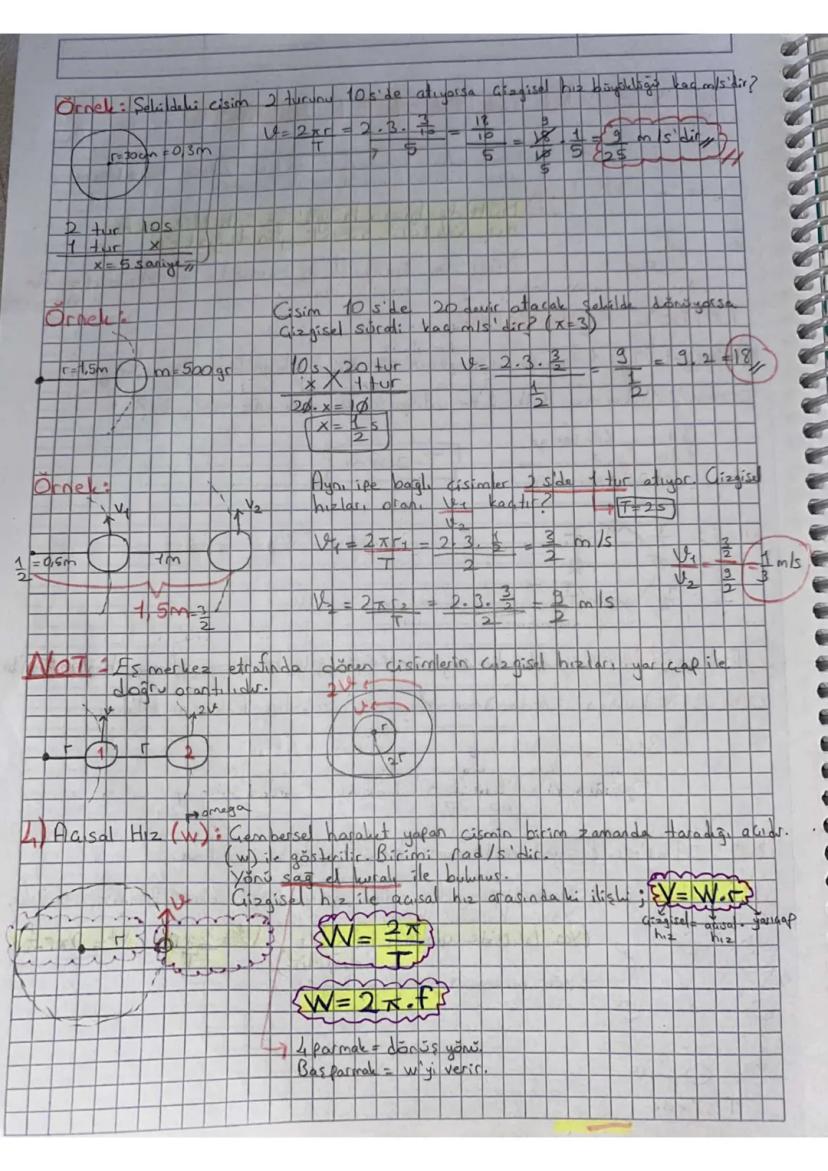 Örnek: Şekildeki cisim 2 turunu 10s'de atıyorsa çizgisel hız büyüklüğü kaç m/s'dir?
r=30cm=0,3m
V = 2πr/T = 2.3.3/10 / 5 = 18/10 / 5 = 18/10 . 1/5 = 9/25 m/s'dir
2 tur 10s
1 tur x
x=5 saniye
Örnek: Cisim 10 s'de 20 devir atacak şekilde dönüyorsa
çizgisel sürati kaç m/s'dir? (π=3)
r=1,5m m=500gr
10s 20 tur
x 1 tur
20.x=10
x=1/2 s
V= 2.3.3/2 / 1/2 = 9 / 1/2 = 9.2=18
Örnek: Aynı ipe bağlı cisimler 2s'de 1 tur atıyor. Çizgisel
hızları oranı V1/V2 kaçtır? T=2s
V1 V2
1/2=0,5m 1m
1,5m=3/2
V1 = 2πr1/T = 2.3.1/2 / 2 = 3/2 m/s
V2 = 2πr2/T = 2.3.3/2 / 2 = 9/2 m/s
V1/V2 = 3/2 / 9/2 = 1/3 m/s
NOT: Eş merkez etrafında dönen cisimlerin çizgisel hızları yarıçap ile
doğru orantılıdır.
r 1 r 2 V 2V
2V
V
r
2r
omega
4) Açısal Hız (W): Çembersel haraket yapan cismin birim zamanda taradığı açıdır.
(w) ile gösterilir. Birimi rad/s'dir.
Yönü sağ el kuralı ile bulunur.
Çizgisel hız ile açısal hız arasındaki ilişki; V=W.r
çizgisel hız = açısal hız . yarıçap
V
r
W= 2π/T
W=2π.f
4 parmak = dönüş yönü.
Başparmak = w'yi verir.